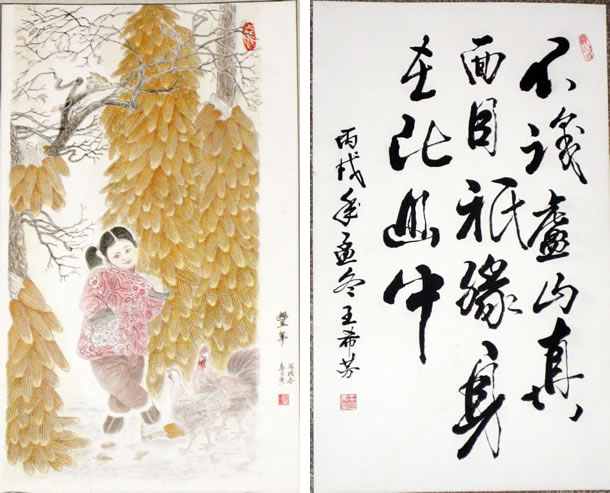 豐年
丙戌冬
不識盧山真
面目祇緣身
在此山中
丙戌年孟冬王希芳